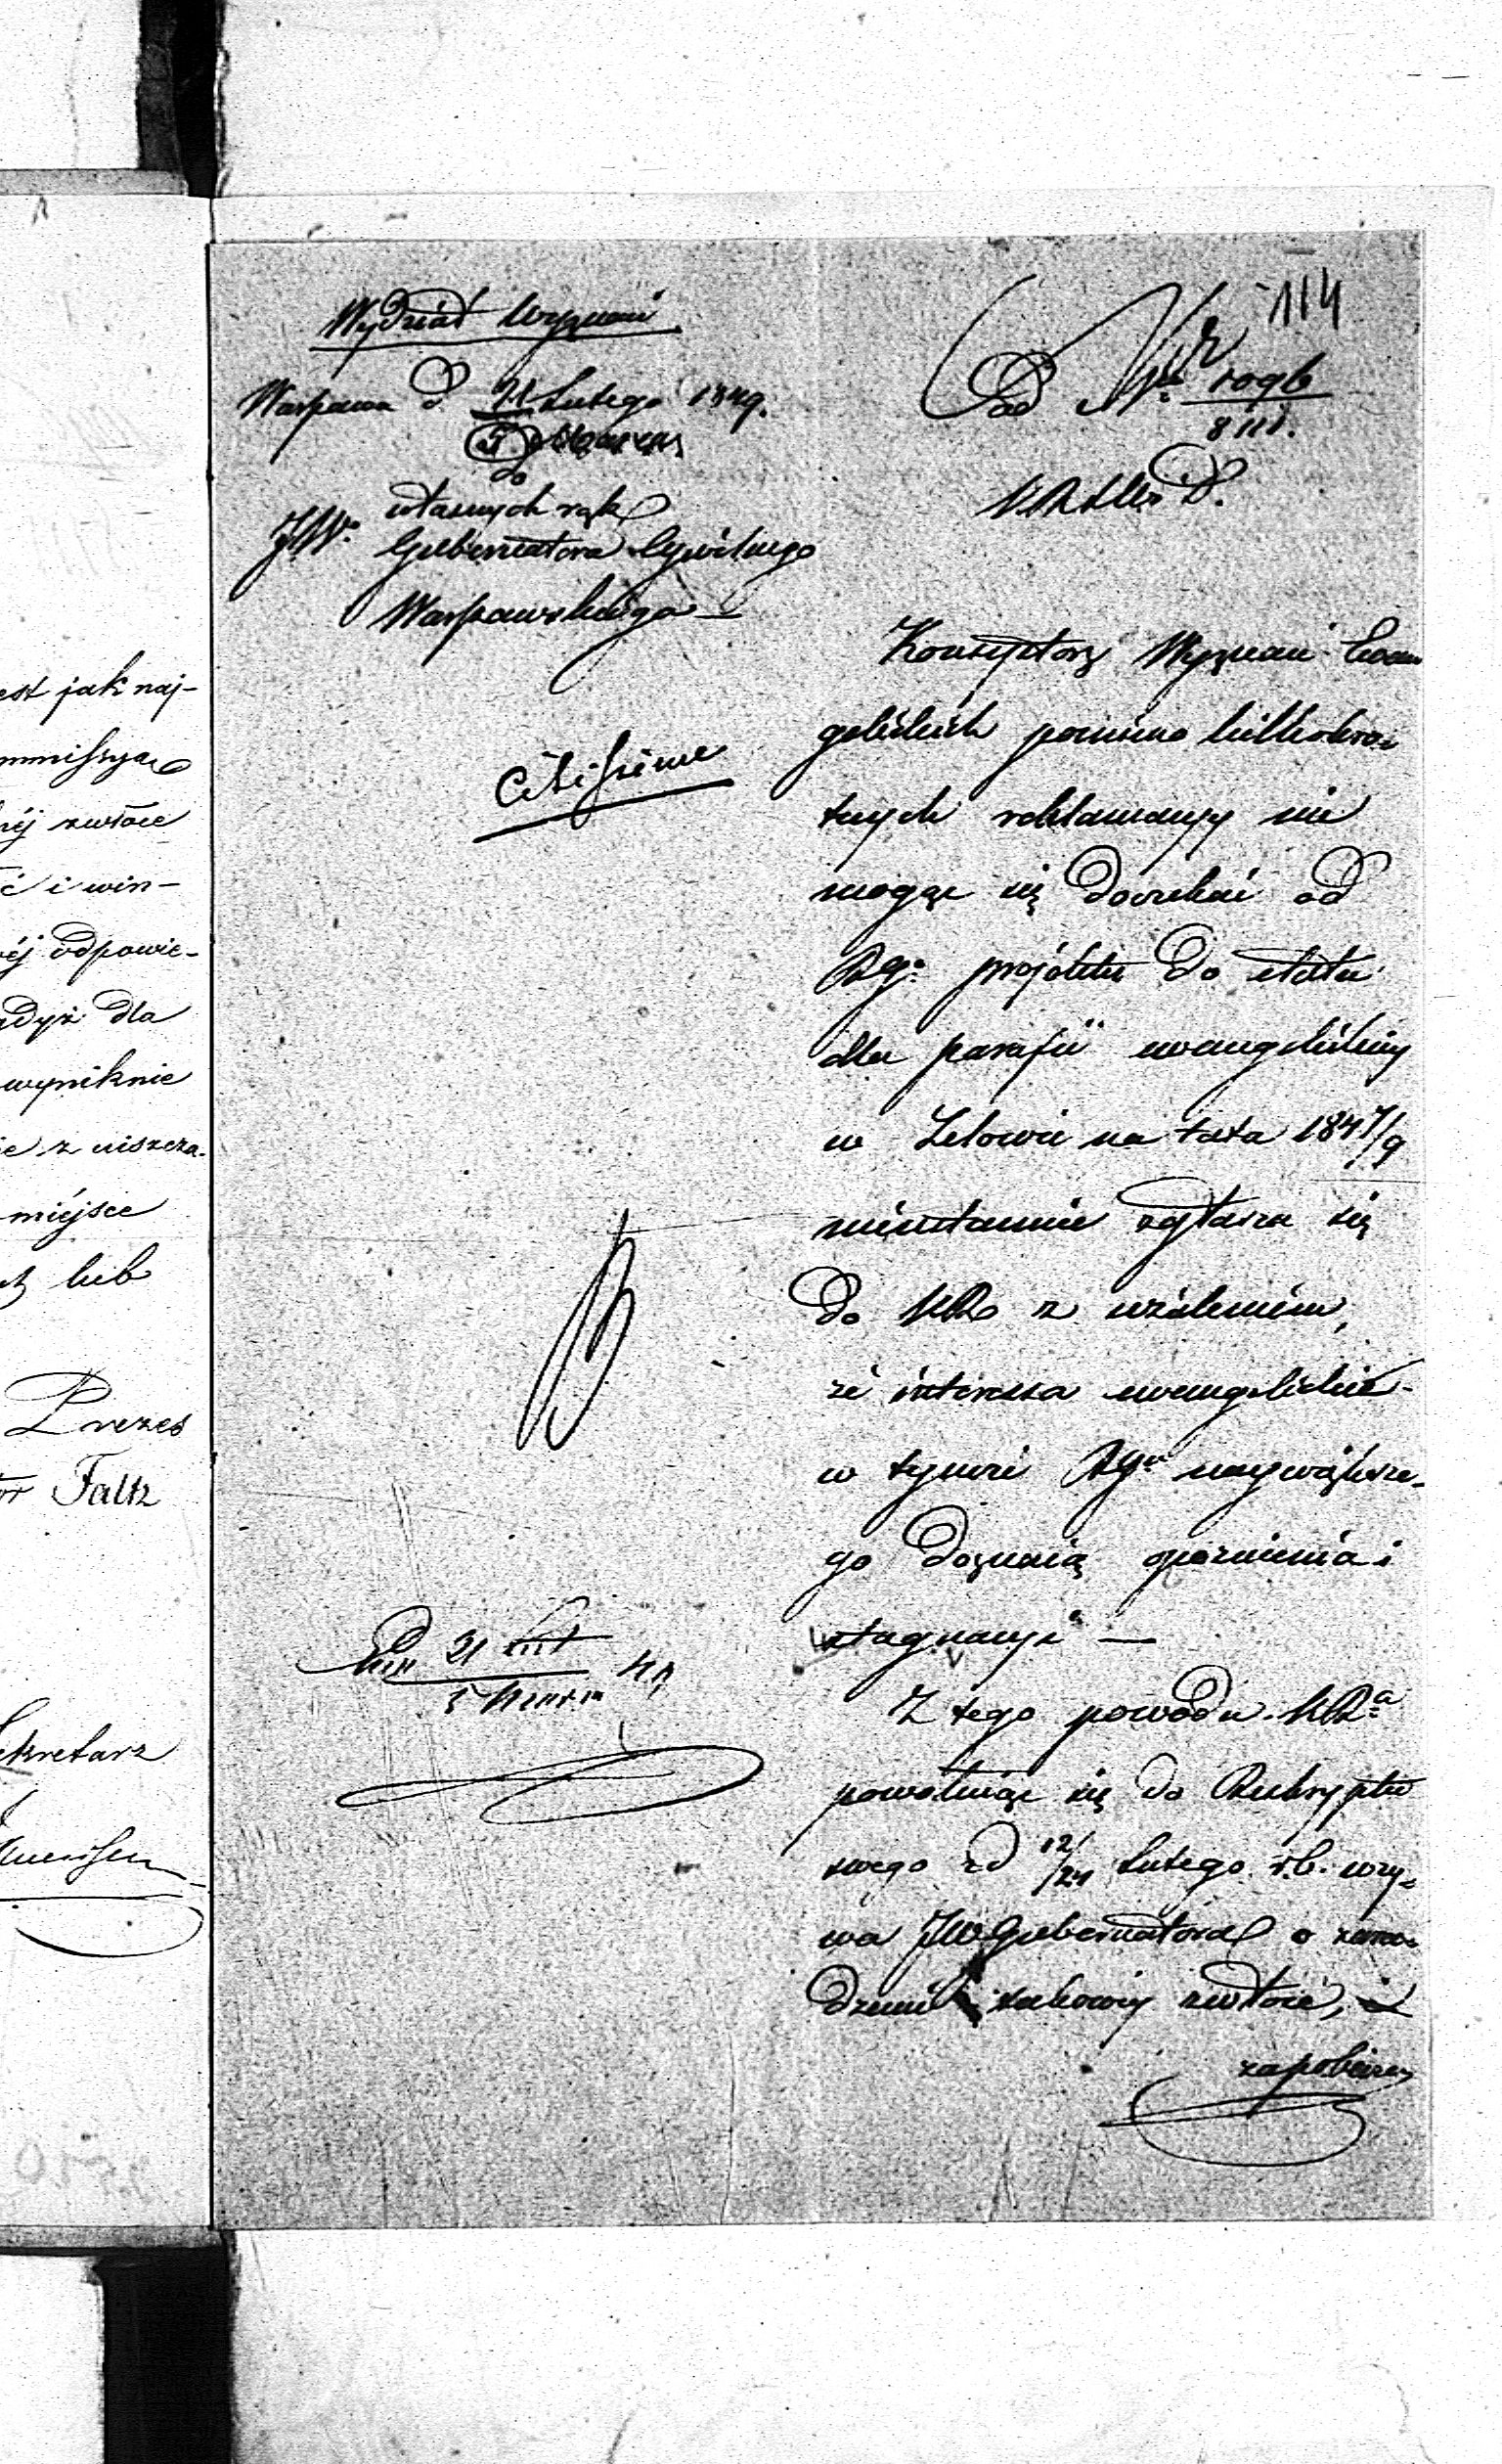 est jak naj-
mmissya
nej zwłoce
ć i win-
ej odpowie-
gdyż dla
wyniknie
ie z uiszcza-
miéjsce
lub
Prezes
Faltz
ekretarz
114
Wydział Wyznań
Warszawa d. 21 Lutego 1849.
5 Marca
do
własnych rąk
JW. Gubernatora Cywilnego
Warszawskiego
Citissime
Ad Nr 1096
Konsystorz Wyznań Ewan
gelickich pomimo kilkokro-
tnych reklamacyj nie
mogąc się doczekać od
RG. projektu do etatu
dla parafii ewangelickiej
w Zelowie na lata 184 7/9
nieustannie zgłasza się
do KR z użaleniem,
że interessa ewangelickie
w tymże RG. największe-
go doznaią opóźnienia i
stagnacyi —
Z tego powodu KRa
powołując się do Reskryptu
swego z d 12/24 Lutego r.b. wzy-
wa JWGubernatora o zara-
dzenie takowej zwłoce,
zapobieże
d 21 Lut
5 Marca 49